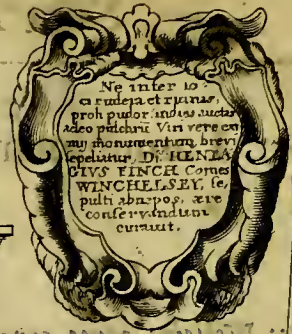 Ne inter io
ca rudera et ruinas,
proh pudor! indies auctas
adeo pulchrū Viri vere ex
mij monumentum, brevi
sepeliatur, Dñs HENEA
GIVS FINCH Comes
WINCHELSEY, se,
pulti abnepos, ære
conservandum
curavit.